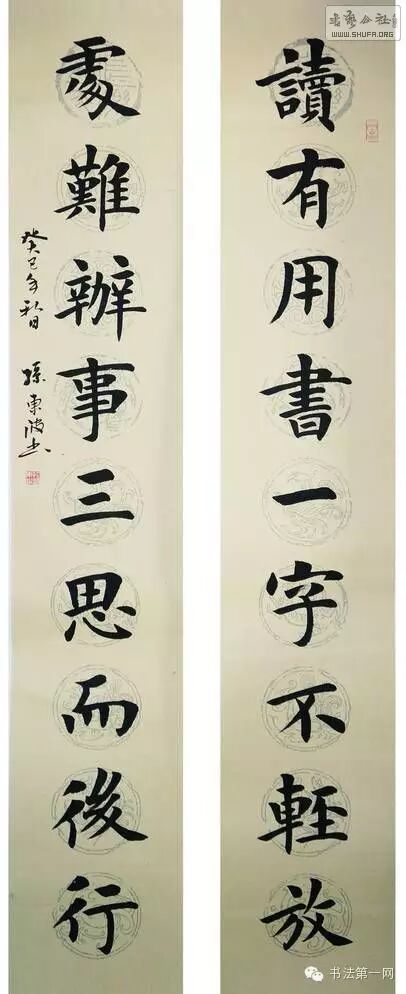 讀有用書一字不輕放
處難辦事三思而後行
癸巳年秋日 孫東波书
书艺公社
WWW.SHUFA.ORG
书法第一网